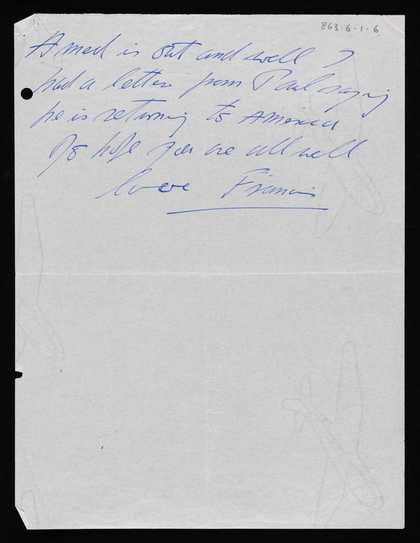 863-6-1-6
Ahmed is out and well I
had a letter from Paul saying
he is returning to America
I do hope you are all well
love Francis